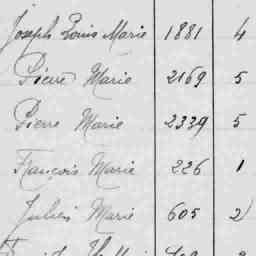 Joseph Louis Marie 1881 4
Pierre Marie 2169 5
Pierre Marie 2339 5
François Marie 226 1
Julien Marie 605 2